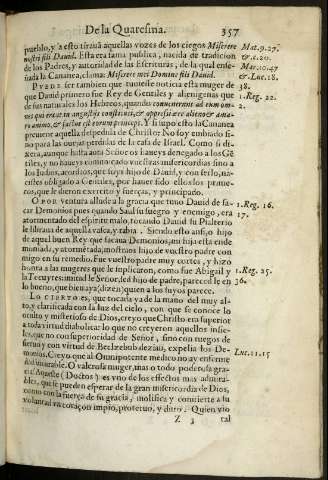 De la Quaresma. 357
pueblo, y a esto tiraua aquellas vozes de los ciegos Miserere Mat.9.27.
nostri fili Dauid. Esta era fama publica, nacida de tradicion &c.20.
de los Padres, y autoridad de las Escrituras, de la qual ense- Mar.10.47
ñada la Cananea, clama: Miserere mei Domine fili Dauid. &Luc.18.
PVEDE ser tambien que tuuiesse noticia esta muger de 38.
que Dauid primero fue Rey de Gentiles y alienigenas que 1.Reg.22.
de sus naturales los Hebreos, quando conuenerunt ad eum om- 2.
nes qui erant in angustijs constituti, & oppressi aere alieno & ama-
ro animo, & factus est eorum princeps. Y si supo esto la Cananea
preuente aquella despedida de Christo: No soy embiado si-
no para las ouejas perdidas de la casa de Israel. Como si di-
xera, aunque hasta aora Señor os hayeys denegado a los Gē-
tiles, y no hayeys comunicado vuestras misericordias sino a
los Iudios, acordaos, que soys hijo de Dauid, y con serlo, na-
cistes obligado a Gētiles, por hauer sido ellos los prime-
ros, que le dieron exercito y fuerças, y principado.
O POR ventura allude a la gracia que tuuo Dauid de sa- 1.Reg.16.
car Demonios pues quando Saul su suegro y enemigo, era 17.
atormentado del espiritu malo, tocando Dauid su Psalterio
le libraua de aquella rabia. Siendo esto ansi, o hijo
de aquel buen Rey que sacaua Demonios, mi hija esta ende
moniada, y atormētada, mostraos hijo de vuestro padre con
migo en su remedio. Fue vuestro padre muy cortes, y hizo
honra a las mugeres que le suplicaron, como fue Abigail y 1.Reg.25.
la Tecuytes similmente le Señor, sed hijo de padre, pareced le en 36.
lo bueno, que bien aya (dizen) quien a los suyos parece.
LO CIERTO es, que tocada ya de la mano del muy al-
to, y clarificada con la luz del cielo, con que se conoce lo
oculto y misterioso de Dios, creyo que Christo era superior
a toda virtud diabolica: lo que no creyeron aquellos infie-
les, que no con superioridad de Señor, sino con ruegos de
sieruo y con virtud de Beelzebub dezian, expelia los De- Luc.11.15
monios. Creyo que al Omnipotente medico no ay enferme
dad incurable. O valerosa muger, mas o todo poderosa gra-
cia. Aqueste (Doctos) es vno de los effectos mas admira-
bles, que se pueden esperar de la gran misericordia de Dios,
como con la fuerça de su gracia, molifica y conuierte a su
voluntad vn coraçon impio, proteruo, y duro. Quien vio
Z 3 tal